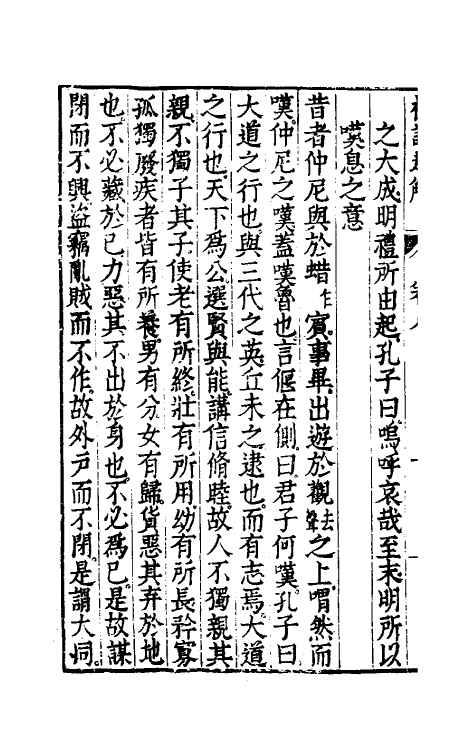 之大成明禮所由起孔子曰嗚呼哀哉至末明所以
嘆息之意
昔者仲尼與於蜡乍賓。事畢。出遊於觀去聲之上。喟然而
嘆。仲尼之嘆。蓋嘆魯也。言偃在側。曰。君子何嘆。孔子曰。
大道之行也。與三代之英。丘未之逮也。而有志焉。大道
之行也。天下為公。選賢與能。講信脩睦。故人不獨親其
親。不獨子其子。使老有所終。壯有所用。幼有所長。矜寡
孤獨廢疾者皆有所養。男有分。女有歸。貨惡其弃於地
也。不必藏於己。力惡其不出於身也。不必為己。是故謀
閉而不興。盜竊亂賊而不作。故外戶而不閉。是謂大同。